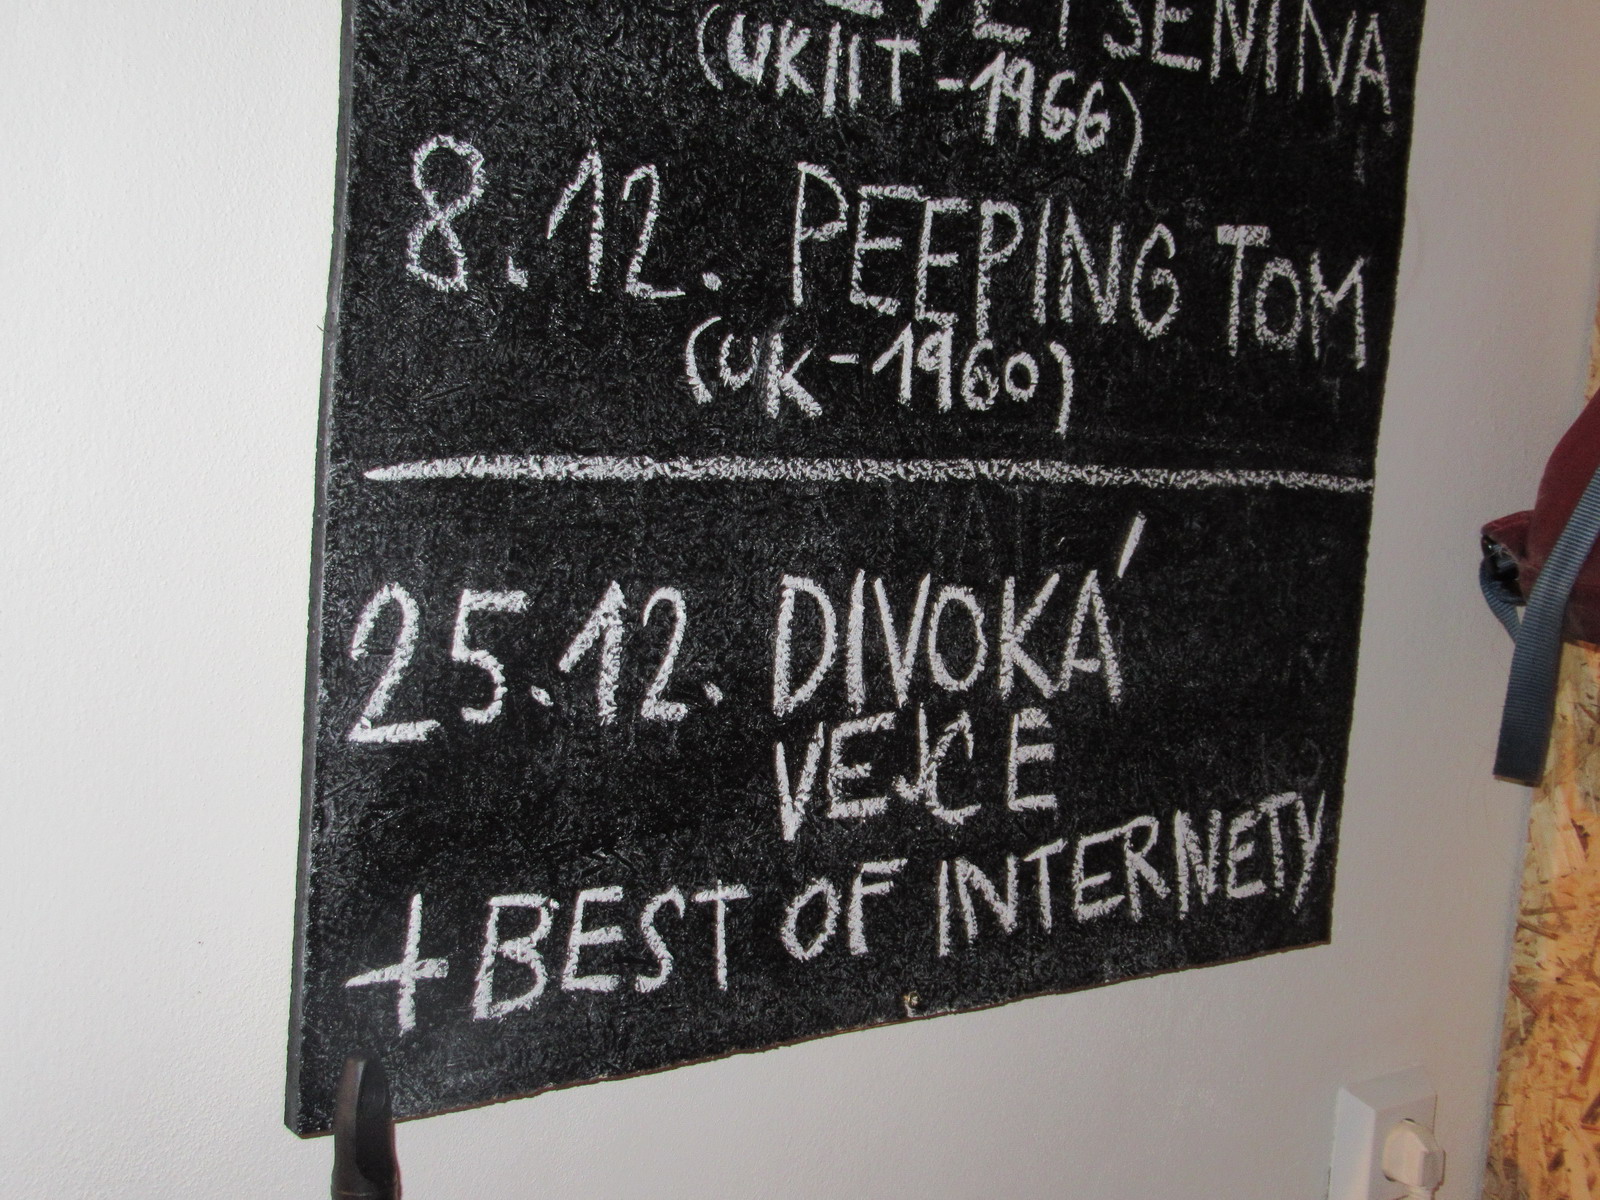 (UK/IT - 1966)
8.12. PEEPING TOM
(UK - 1960)
25.12. DIVOKÁ
VEJCE
+ BEST OF INTERNETY